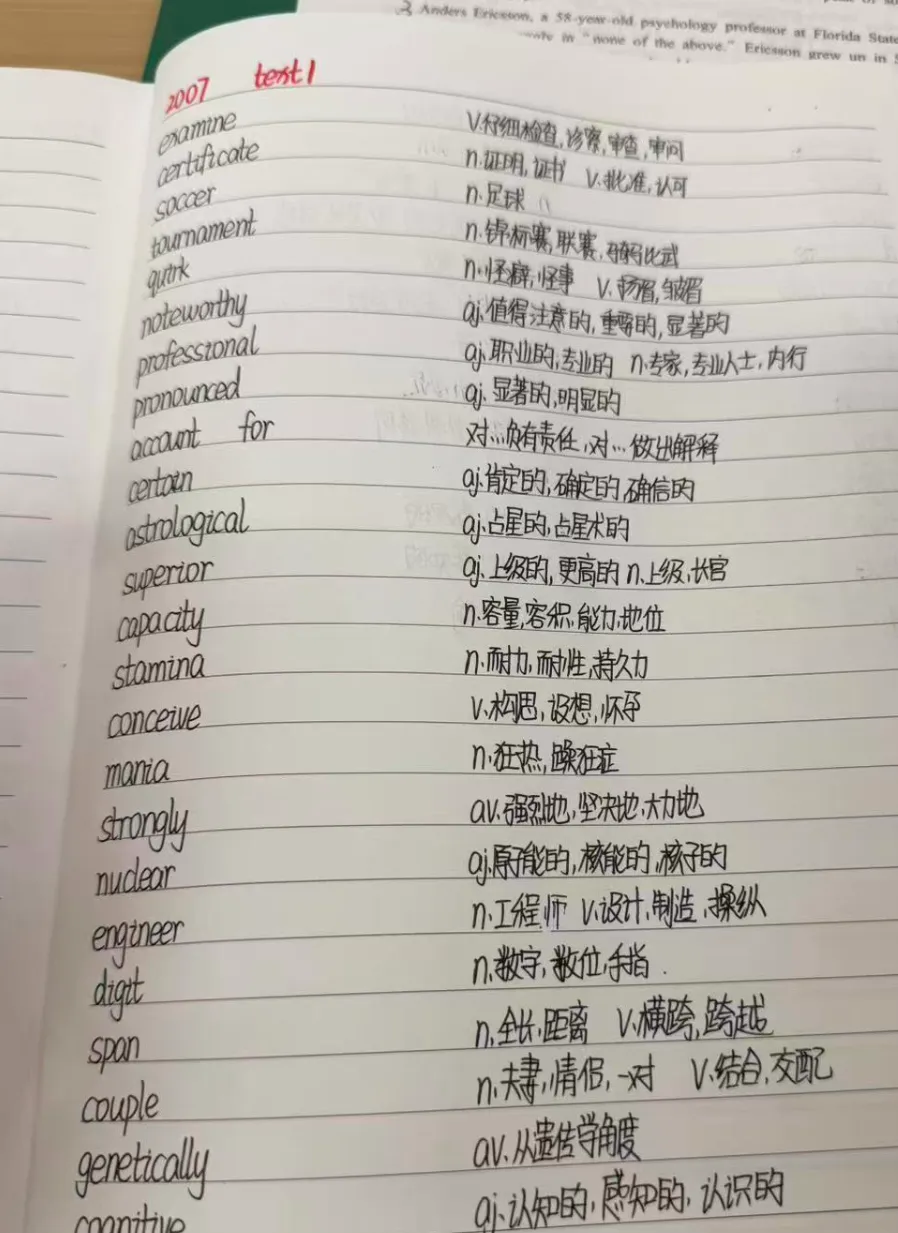 3 Anders Ericsson, a 58-year-old psychology professor at Florida State
role in "none of the above." Ericsson grew up in S
2007 text1
examine v.仔细检查,诊察,审查,审问
certificate n.证明,证书 v.批准,认可
soccer n.足球
tournament n.锦标赛,联赛,比武
quirk n.怪癖,怪事 v.扬眉,皱眉
noteworthy aj.值得注意的,重要的,显著的
professional aj.职业的,专业的 n.专家,专业人士,内行
pronounced aj.显著的,明显的
account for 对…负有责任,对…做出解释
certain aj.肯定的,确定的,确信的
astrological aj.占星的,占星术的
superior aj.上级的,更高的 n.上级,长官
capacity n.容量,容积,能力,地位
stamina n.耐力,耐性,持久力
conceive v.构思,设想,怀孕
mania n.狂热,躁狂症
strongly av.强烈地,坚决地,大力地
nuclear aj.原子能的,核能的,核子的
engineer n.工程师 v.设计,制造,操纵
digit n.数字,数位,手指.
span n.全长,距离 v.横跨,跨越
couple n.夫妻,情侣,一对 v.结合,交配
genetically av.从遗传学角度
cognitive aj.认知的,感知的,认识的